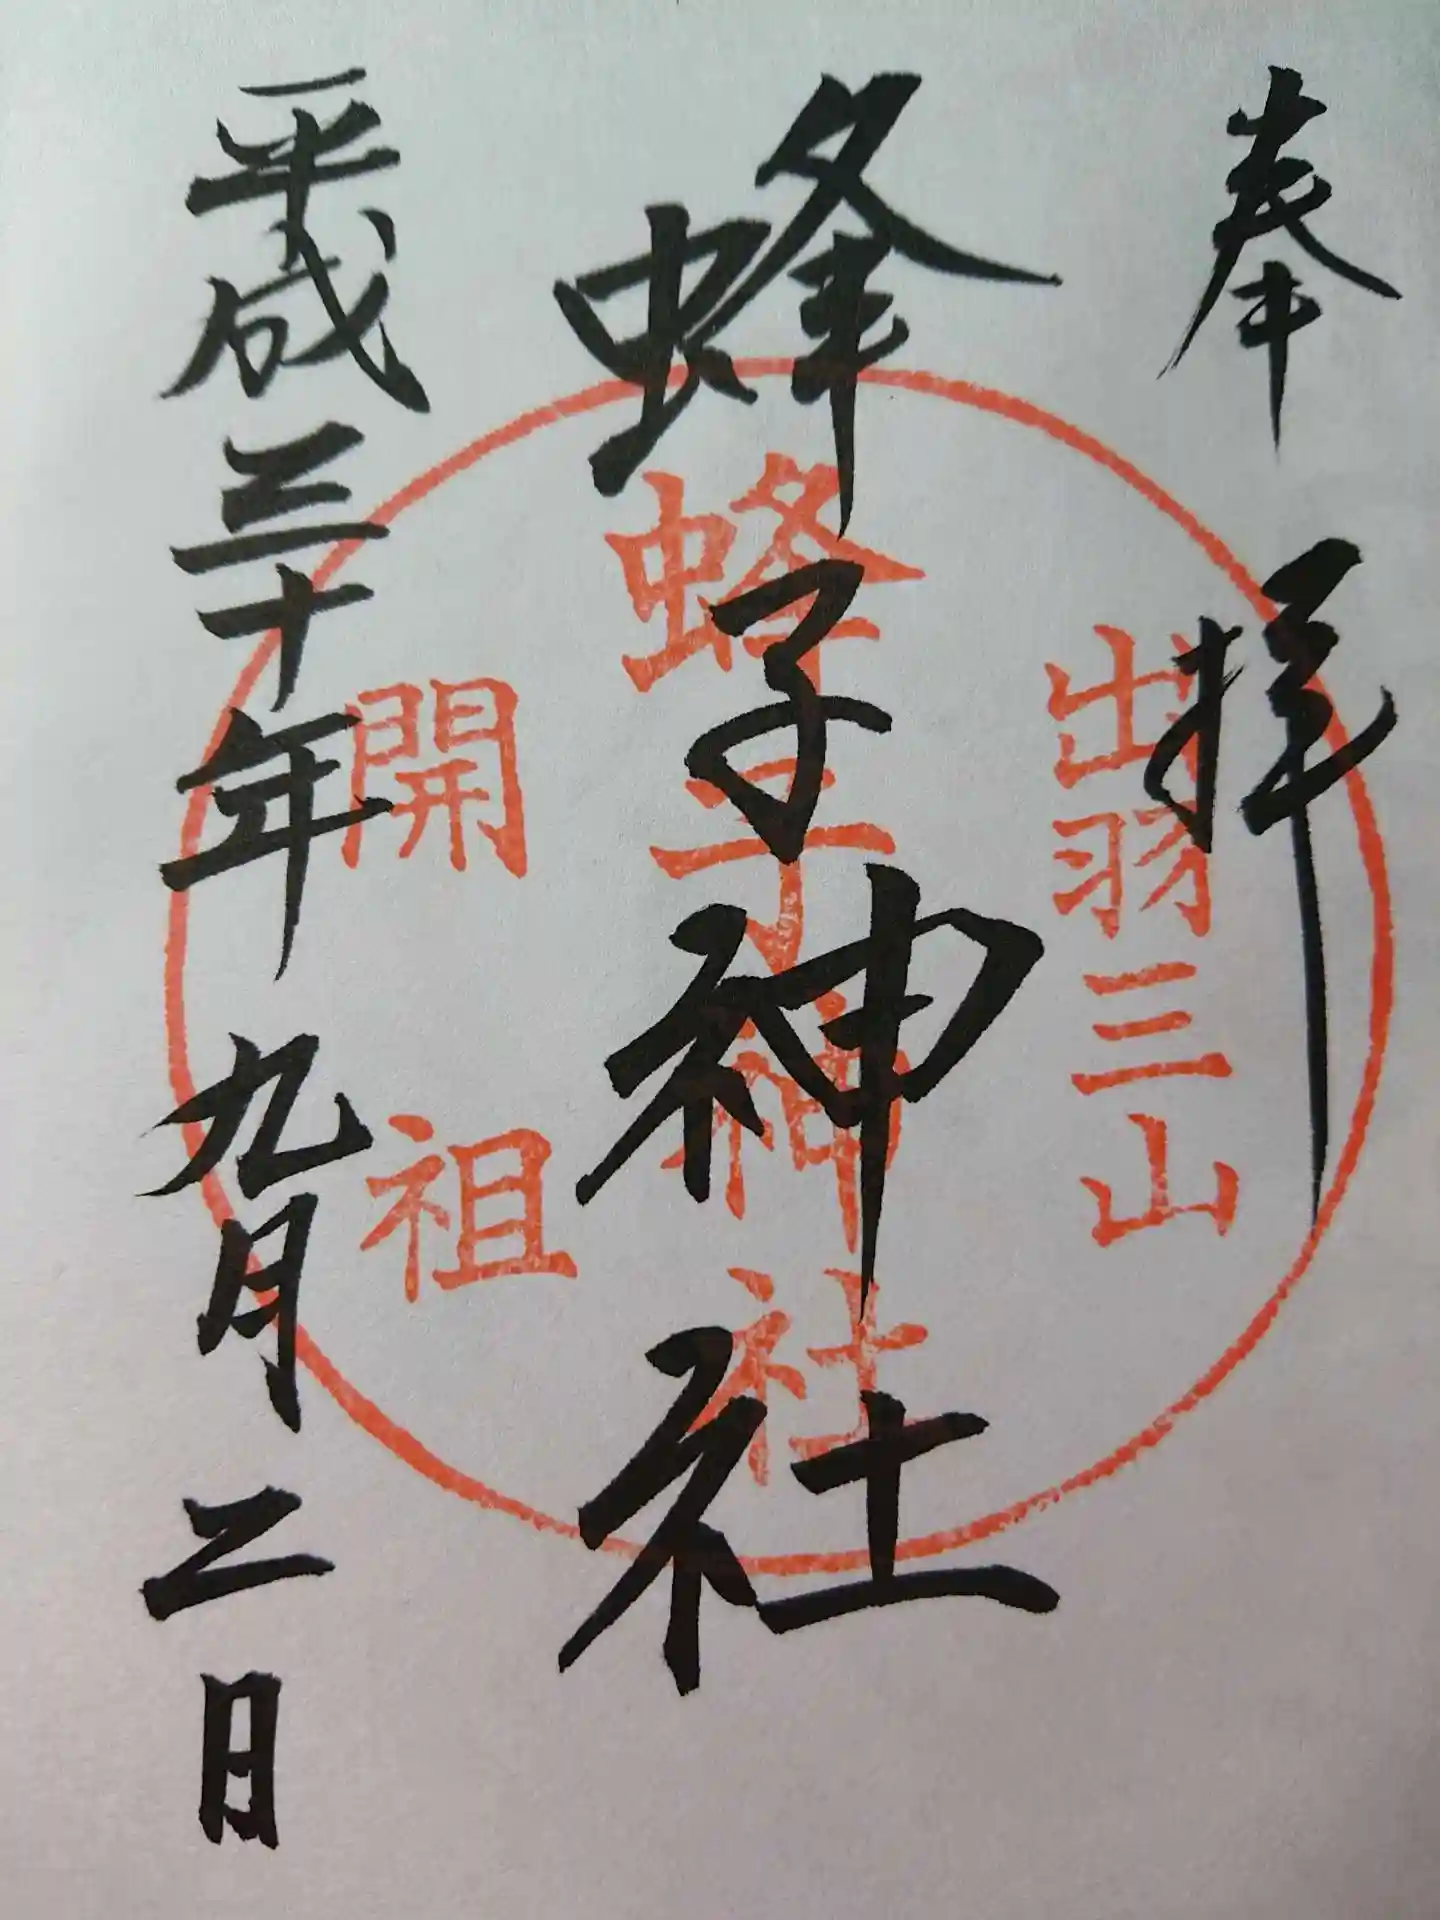 奉拝
出羽三山
蜂子神社
蜂子神社
開祖
平成三十年九月二日